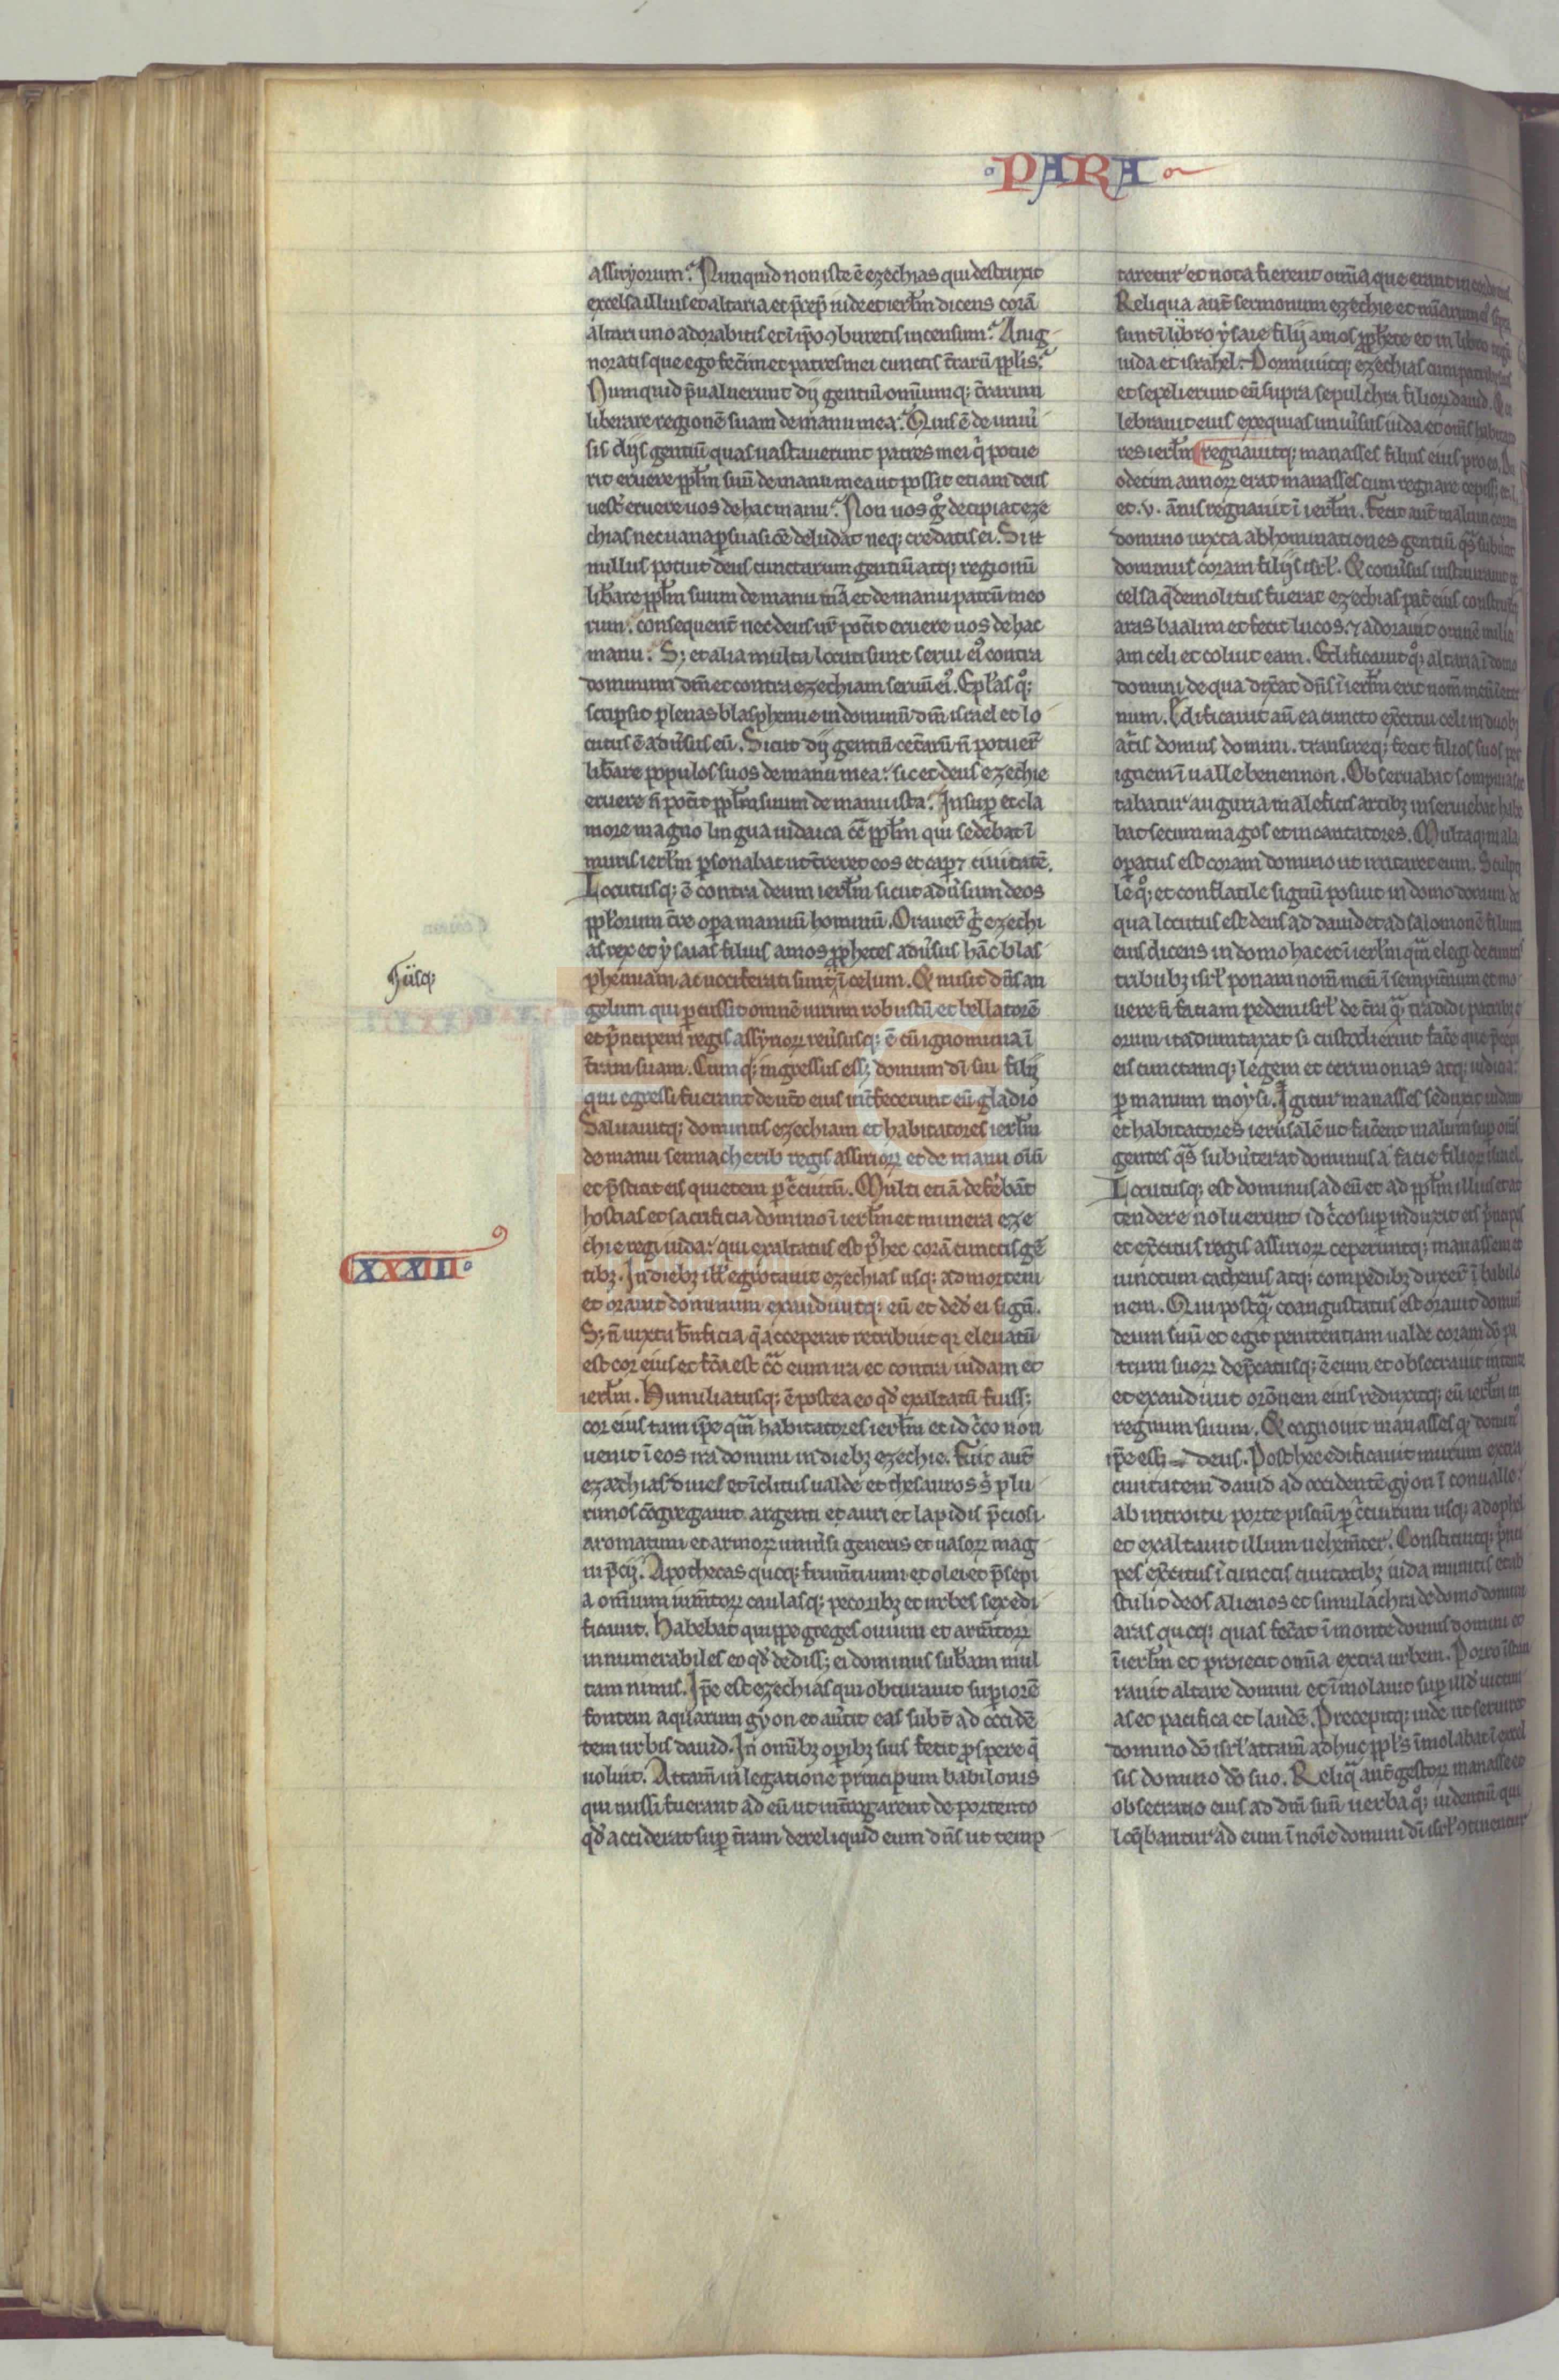 PARA
assiryorum. Nunquid non iste ē ezechias qui destruxit
excelsa illius et altaria et p̄cep̄ iude et ierl̄m dicens corā
altari uno adorabitis et ī ip̄o ꝯburetis incensum. An ig
noratis que ego fec̄im et patres mei cunctis t̄rarū pp̄lis.
Numquid p̄ualuerunt dij gentiū omniumq; t̄rarum
liberare regionē suam de manu mea. Quis ē de uniu̓
sis dijs gentiū quas uastauerunt patres mei q̓ potue
rit eruere pp̄l̄m suū de manu mea ut possit etiam deus
uest̄ eruere uos de hac manu. Non uos g̊ decipiat eze
chias nec uana ꝑsuasiōe deludat neq; credatis ei. Si n̄
nullus potuit deus cunctarum gentiū atq; regionū
lib̄are pp̄l̄m suum de manu m̄a et de manu patrū meo
rum. consequent̄ nec deus ur̄ pot̄it eruere uos de hac
manu. S; et alia multa locuti sunt serui ei᷒ contra
dominum dm̄ et contra ezechiam seruū ei᷒. Epl̄as q̊;
scripsit plenas blasphemie in dominū dm̄ israel et lo
cutus ē adu̓sus eū. Sicut dij gentiū cet̄arū n̄ potuer̄
lib̄are populos suos de manu mea: sic et deus ezechie
eruere n̄ pot̄it pp̄l̄m suum de manu ista. Insuꝑ et cla
more magno lingua iudaica cō̄ pp̄l̄m qui sedebat ī
muris ierl̄m ꝑsonabat ut t̄reret eos et cap̄et ciuitatē.
Locutusq; ē contra deum ierl̄m sicut adu̓sum deos
pp̄l̄orum t̄re oꝑa manuū hominū. Orauer̄ g̊ ezechi
as rex et ysaias filius amos pp̄hetes adu̓sus hāc blas
phemiam. ac uociferati sunt ī celum. Et misit dn̄s an
Iusq;
gelum qui ꝑcussit omnē uirum robustū et bellatorē
et p̄ncipem regis assyrioꝝ reu̓susq; ē cū ignominia ī
t̄ram suam. Cumq; ingressus ess; domum dī sui filij
qui egressi fuerant de ut̄o eius int̄fecerunt eū gladio
Saluauitq; dominus ezechiam et habitatores ierl̄m
de manu sennacherib regis assirioꝝ et de manu oīū
et p̄stitit eis quietem ꝑ c̓cuitū. Multi etiā defēbāt
hostias et sacrificia domino ī ierl̄m et munera eze
XXXIII
chie regi iuda: qui exaltatus est p᷒ hec corā cunctis gē
tibꝫ. In diebꝫ ill̄ egrotauit ezechias usq; ad mortem
et orauit dominum exaudiuitq; eū et dedit ei signū.
S; n̄ iuxta b̄nficia q̄ acceperat retribuit qꝛ eleuatū
est cor eius et fc̄a est cō̄ eum ira et contra iudam et
ierl̄m. Humiliatusq; ē postea eo qd̓ exaltatū fuiss;
cor eius tam ip̄e qm̄ habitatores ierl̄m et idc̓co non
uenit ī eos ira domini in diebꝫ ezechie. Fuit aut̄
ezechias diues et īclitus ualde et thesauros s̓ plu
rimos cōgregauit argenti et auri et lapidis p̄ciosi
aromatum et armoꝝ uniu̓si generis et uasoꝝ mag
ni p̄cij. Apothecas quoq; frum̄ti uini et olei et p̄sepi
a omnium ium̄toꝝ caulasq; pecoribꝫ et urbes sex edi
ficauit. Habebat quippe greges ouium et arm̄toꝝ
innumerabiles eo qd̓ dediss; ei dominus sub̄am mul
tam nimis. Ip̄e est ezechias qui obturauit suꝑiorē
fontem aquarum gyon et au̓tit eas subt̄ ad occidē
tem urbis dauid. In omībꝫ oꝑibꝫ suis fecit ꝓspere q̄
uoluit. Attam̄ in legatione principum babilonis
qui missi fuerant ad eū ut int̄rogarent de portento
qd̓ acciderat suꝑ t̄ram dereliquid eum dn̄s ut temp
taretur et nota fierent om̄ia que erant in corde
Reliqua aut̄ sermonum ezechie et
sunt ī libro ysaie filij amos pp̄hete et in libro
iuda et israhel. Dormiuitq; ezechias cum patribus
et sepelierunt eū supra sepulchra filioꝝ dauid.
lebrauit eius exequias uniu̓sus iuda et om̄s habitato
res ierl̄m regnauitq; manasses filius eius pro eo. Du
odecim annoꝝ erat manasses cum regnare cepiss;
et .v. ānis regnauit ī ierl̄m. Fecit aut̄ malum coram
domino iuxta abhominationes gentiū q̄s subu̓tit
dominus coram filijs isrl̓. Et conu̓sus instaurauit ex
celsa q̄ demolitus fuerat ezechias pat̄ eius construxitq;
aras baalim et fecit lucos. ⁊ adorauit omnē milici
am celi et coluit eam. Edificauit q̊; altaria ī domo
domini de qua dix̓at dn̄s ī ierl̄m erit nom̄ meū
num. Edificauit aū ea cuncto ex̓citui celi in duobꝫ
at̓is domus domini. transireq; fecit filios suos per
ignem ī ualle benennon. Obseruabat sompnia
tabatur auguria maleficis artibꝫ inseruiebat habe
bat secum magos et incantatores. Multaq; mala
oꝑatus est coram domino ut irritaret eum. Sculpti
le q̊; et conflatile signū posuit in domo domini de
qua locutus est deus ad dauid et ad salomonē filium
eius dicens in domo hac et ī ierl̄m qm̄ elegi de cunctis
tribubꝫ isrl̓ ponam nom̄ meū ī sempit̓num et mo
uere n̄ faciam pedem isrl̓ de t̄ra q̄ tradidi patribꝫ
orum ita dumtaxat si custodierint fac̓e que p̄cepi
eis cunctamq; legem et cerimonias atq; iudicia
ꝑ manum moysi. Igitur manasses seduxit iudam
et habitatores ierusalē ut fac̓ent malum suꝑ om̄s
gentes q̄s subu̓terat dominus a facie filioꝝ israel.
Locutusq; est dominus ad eū et ad pp̄l̄m illius et at
tendere noluerunt idc̓co suꝑinduxit eis p̄ncipes
et ex̓citus regis assirioꝝ ceperuntq; manassem et
uinctum cathenis atq; compedibꝫ duxer̄ ī babilo
nem. Qui postq̄ coangustatus est orauit dominū
deum suū et egit penitentiam ualde coram dō pa
trum suoꝝ dep̄catusq; ē eum et obsecrauit intente
et exaudiuit orōnem eius reduxitq; eū ierl̄m in
regnum suum. Et cognouit manasses qꝛ domin᷒
ip̄e ess; deus. Post hec edificauit murum extra
ciuitatem dauid ad occidentē gyon ī conualle
ab introitu porte pisciū ꝑ c̓cuitum usq; ad ophel
et exaltauit illum uehem̄ter. Constituitq; p̄nci
pes ex̓citus ī cunctis ciuitatibꝫ iuda munitis et ab
stulit deos alienos et simulachra de domo domini
aras quoq; quas fec̓at ī monte domus domini et
ī ierl̄m et proiecit om̄ia extra urbem. Porro īstau
rauit altare domini et īmolauit suꝑ illd̓ uictim
as et pacifica et laudē. Precepitq; iude ut seruiret
domino dō isrl̓ attam̄ adhuc pp̄l̓s īmolabat ī excel
sis domino dō suo. Reliq̄ aut̄ gestoꝝ manasse et
obsecratio eius ad dm̄ suū uerba q̊; uidentiū qui
loq̄bantur ad eum ī noīe domini dī isrl̓ ꝯtinentur